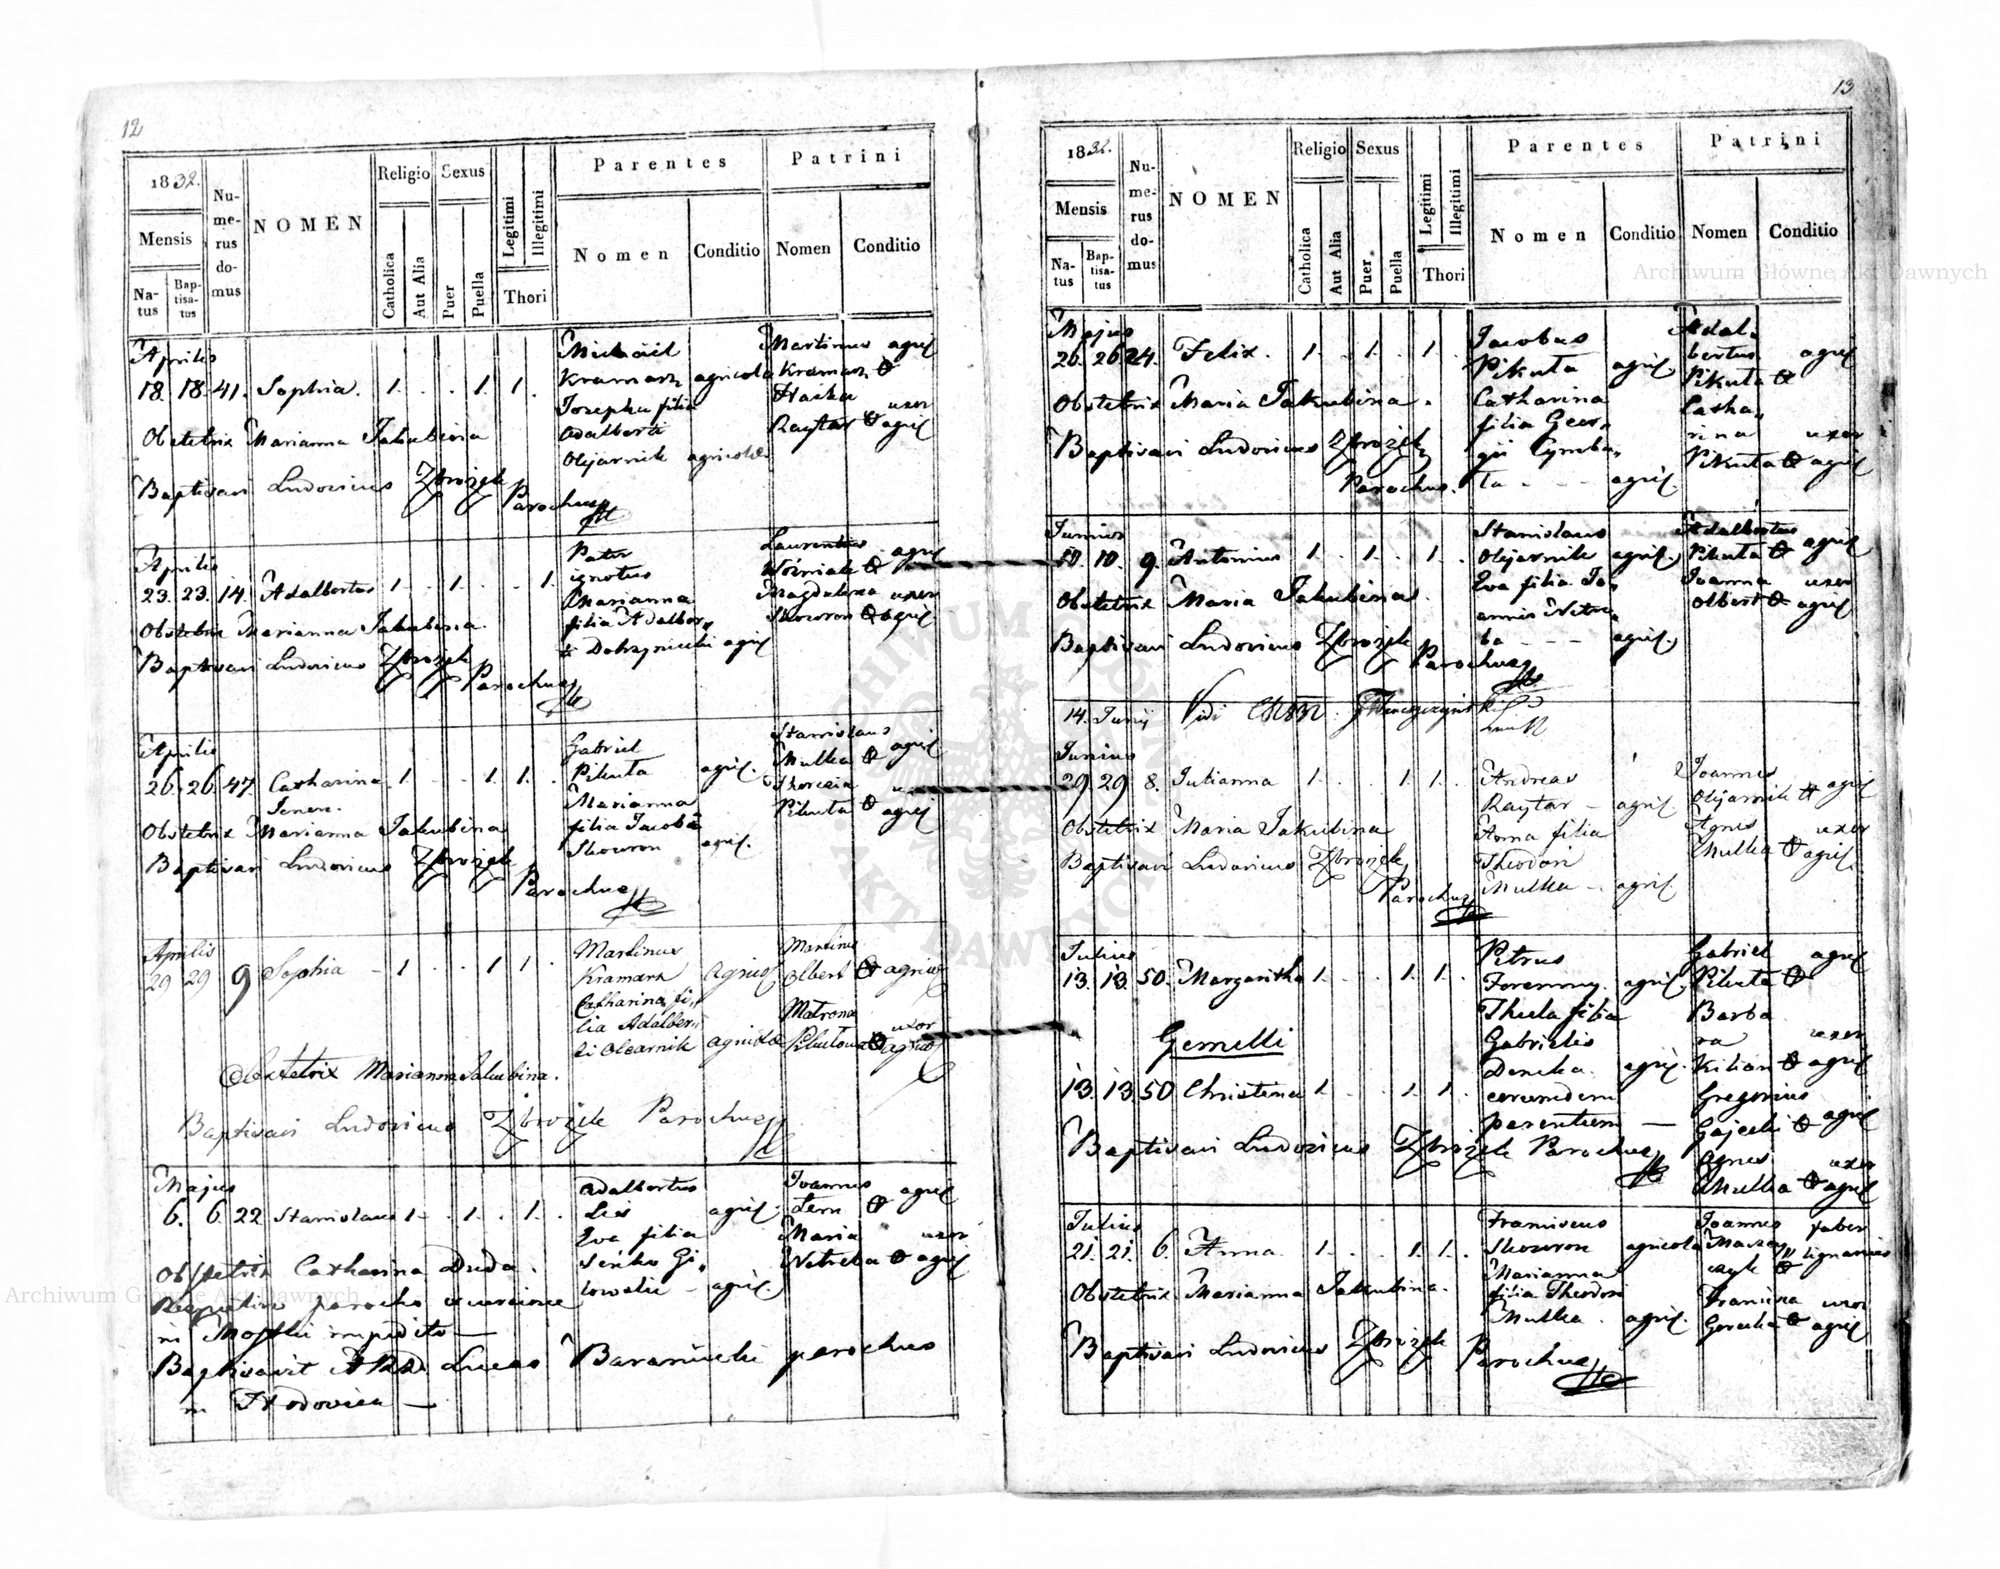 12
1832.
Mensis
Natus
Baptisatus
Numerus domus
NOMEN
Religio
Catholica
Aut Alia
Sexus
Puer
Puella
Legitimi
Illegitimi
Thori
Parentes
Nomen
Conditio
Patrini
Nomen
Conditio
Aprilis
18. 18. 41. Sophia. 1. . . 1. 1. .
Michäel
Kramarz agricola
Josepha filia
Adalberti
Olejarnik agricolæ
Martinus agric.
Kramarz &
uxor
Raytar & agric.
Obstetrix Marianna Jakubina
Baptisavi Ludovicus Zbrożek
Parochus
Aprilis
23. 23. 14. Adalbertus 1. . 1. . . 1.
Pater
ignotus
Marianna
filia Adalber,,
ti agric.
Laurentius agric.
Woźniak &
Magdalena uxor
Skowron & agric.
Obstetrix Marianna Jakubina.
Baptisavi Ludovicus Zbrożek
Parochus
Aprilis
26. 26. 47. Catharina 1. . . 1. 1. .
Gabriel
Pikuta agric.
Marianna
filia Jacobi
Skowron agric.
Stanislaus
Mulka & agric.
Pikuta & agric.
Obstetrix Marianna Jakubina
Baptisavi Ludovicus Zbrożek
Parochus
Aprilis
29 29 9 Sophia - 1 . . 1 1 .
Martinus
Kramarz agricol
Catharina fi,,
lia Adalber,,
ti Olearnik agricolæ
Martinus
Olbert & agricol
Matrona
uxor
Pikutowa & agricol
Obstetrix Marianna Jakubina.
Baptisavi Ludovicus Zbrożek Parochus
Majus
6. 6. 22 Stanislaus 1. . 1. . 1. .
Adalbertus
Lis agric.
Eva filia
agric.
Joannes agric.
&
Maria uxor
Netreba & agric.
Obstetrix Catharina Duda.
parocho
impedito
Baptisavit Lucas Barański parochus
in Hodovica
13
1832.
Mensis
Natus
Baptisatus
Numerus domus
NOMEN
Religio
Catholica
Aut Alia
Sexus
Puer
Puella
Legitimi
Illegitimi
Thori
Parentes
Nomen
Conditio
Patrini
Nomen
Conditio
Majus
26. 26. 24. Felix. 1. . 1. . 1. .
Jacobus
Pikuta agric.
Catharina
filia Geor,,
gii Cymba,,
ła - - - agric.
Adal,,
bertus agric.
Pikuta &
Catha,,
rina uxor
Pikuta & agric.
Obstetrix Maria Jakubina.
Baptisavi Ludovicus Zbrożek
Parochus.
Junius
10. 10. 9. Antonius 1. . 1. . 1. .
Stanislaus
Olejarnik agric.
Eva filia Jo,,
annis Netre,,
ba - - - agric.
Adalbertus
Pikuta & agric.
Joanna uxor
Olbert & agric.
Obstetrix Maria Jakubina.
Baptisavi Ludovicus Zbrożek
Parochus
14. Junij Vidi
Junius
29. 29 8. Julianna 1. . . 1. 1. .
Andreas
Raytar - agric.
Anna filia
Theodori
Mulka - agric.
Joannes
Olejarnik & agric.
Agnes uxor
Mulka & agric.
Obstetrix Maria Jakubina
Baptisavi Ludovicus Zbrożek
Parochus
Julius
13. 13. 50. Margaritha 1. . . 1. 1. .
Petrus
Foremny. agric.
Thecla filia
Gabrielis
agric.
Gabriel agric.
Pikuta &
Barba
ra uxor
Kilian & agric.
Gemelli
13. 13 50 Christina 1. . . 1. 1. .
eorumdem
parentum
Gregorius
Gajecki & agric.
Agnes uxor
Mulka & agric.
Baptisavi Ludovicus Zbrożek Parochus
Julius
21. 21. 6. Anna. 1. . . 1. 1. .
Franciscus
Skowron agricola
Marianna
filia Theodori
Mulka. agric.
Joannes faber
lignarius
Francisca uxor
Gorecka & agric.
Obstetrix Marianna Jakubina.
Baptisavi Ludovicus Zbrożek
Parochus
Archiwum Główne Akt Dawnych
Archiwum Główne Akt Dawnych
ARCHIWUM GŁÓWNE AKT DAWNYCH